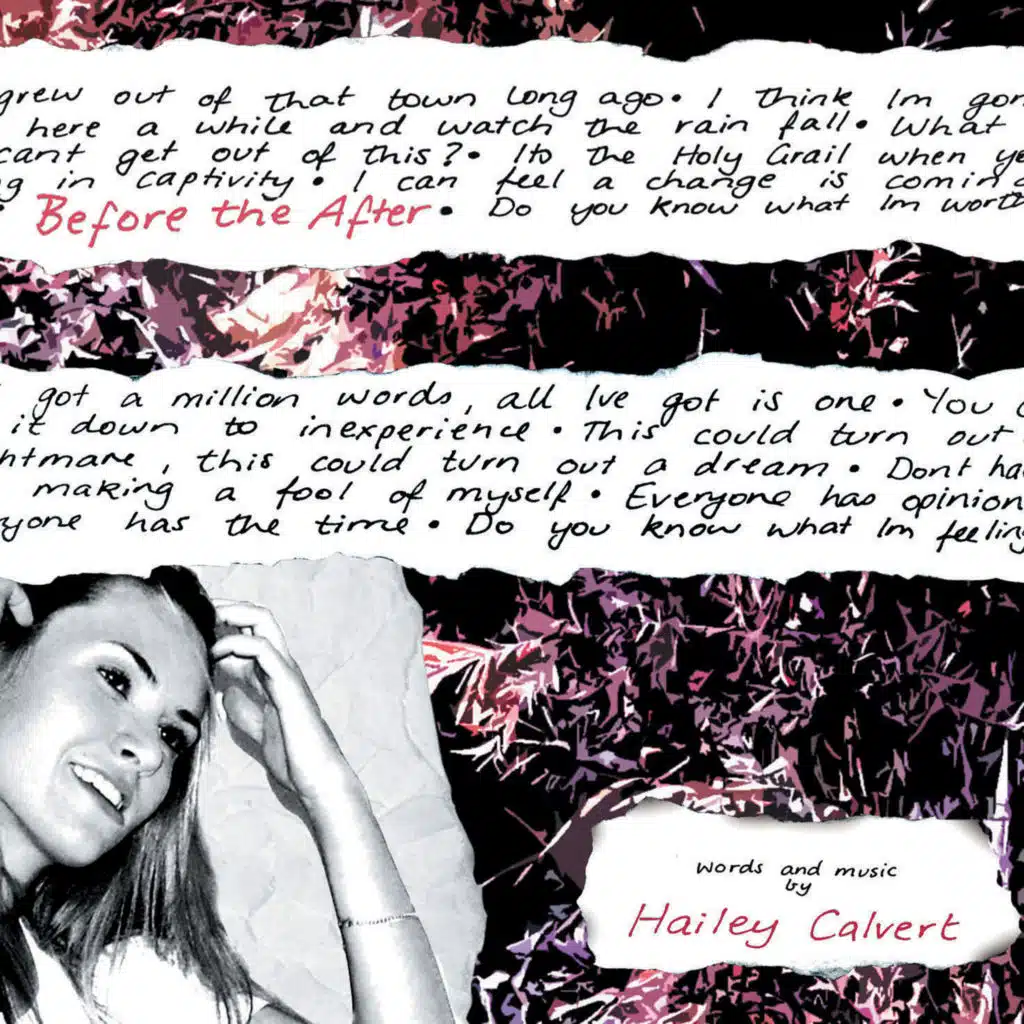 grew out of that town long ago• I think Im gon
here a while and watch the rain fall• What
cant get out of this?• Its the Holy Grail when ye
g in captivity • I can feel a change is coming
• Before the After• Do you know what Im worth
got a million words, all Ive got is one • You
it down to inexperience • This could turn out
htmare, this could turn out a dream • Dont ha
making a fool of myself • Everyone has opinion
yone has the time • Do you know what Im feeling
words and music
by
Hailey Calvert